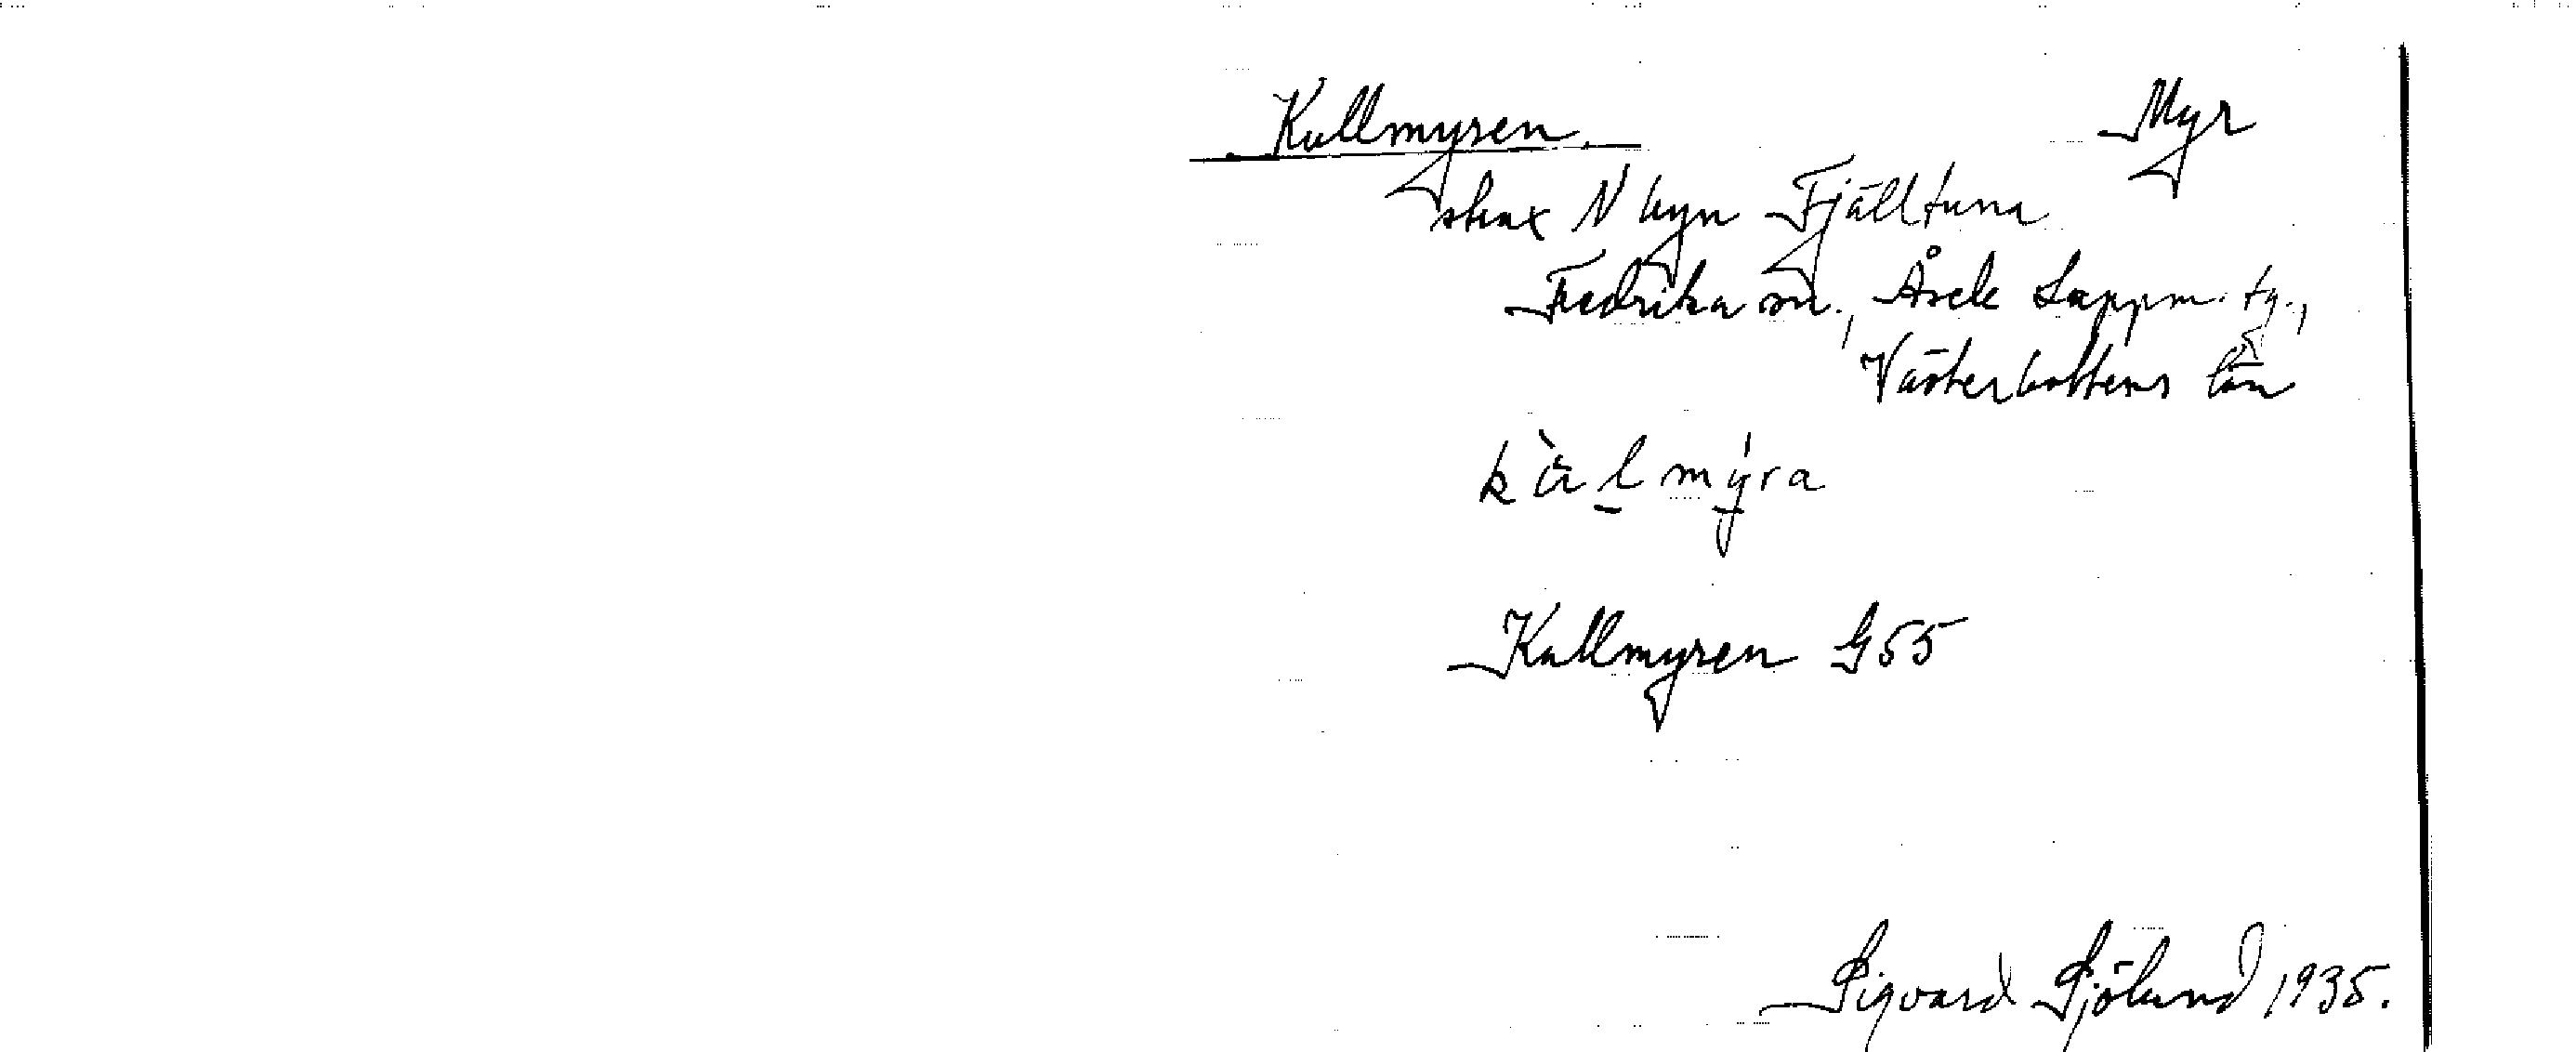 Kullmyren Myr
strax N byn Fjälltuna
Fredrika sn., Åsele Lappm. tg.,
Västerbottens län
kùlmýra
Kullmyren G55
Sigvard Sjölund 1935.